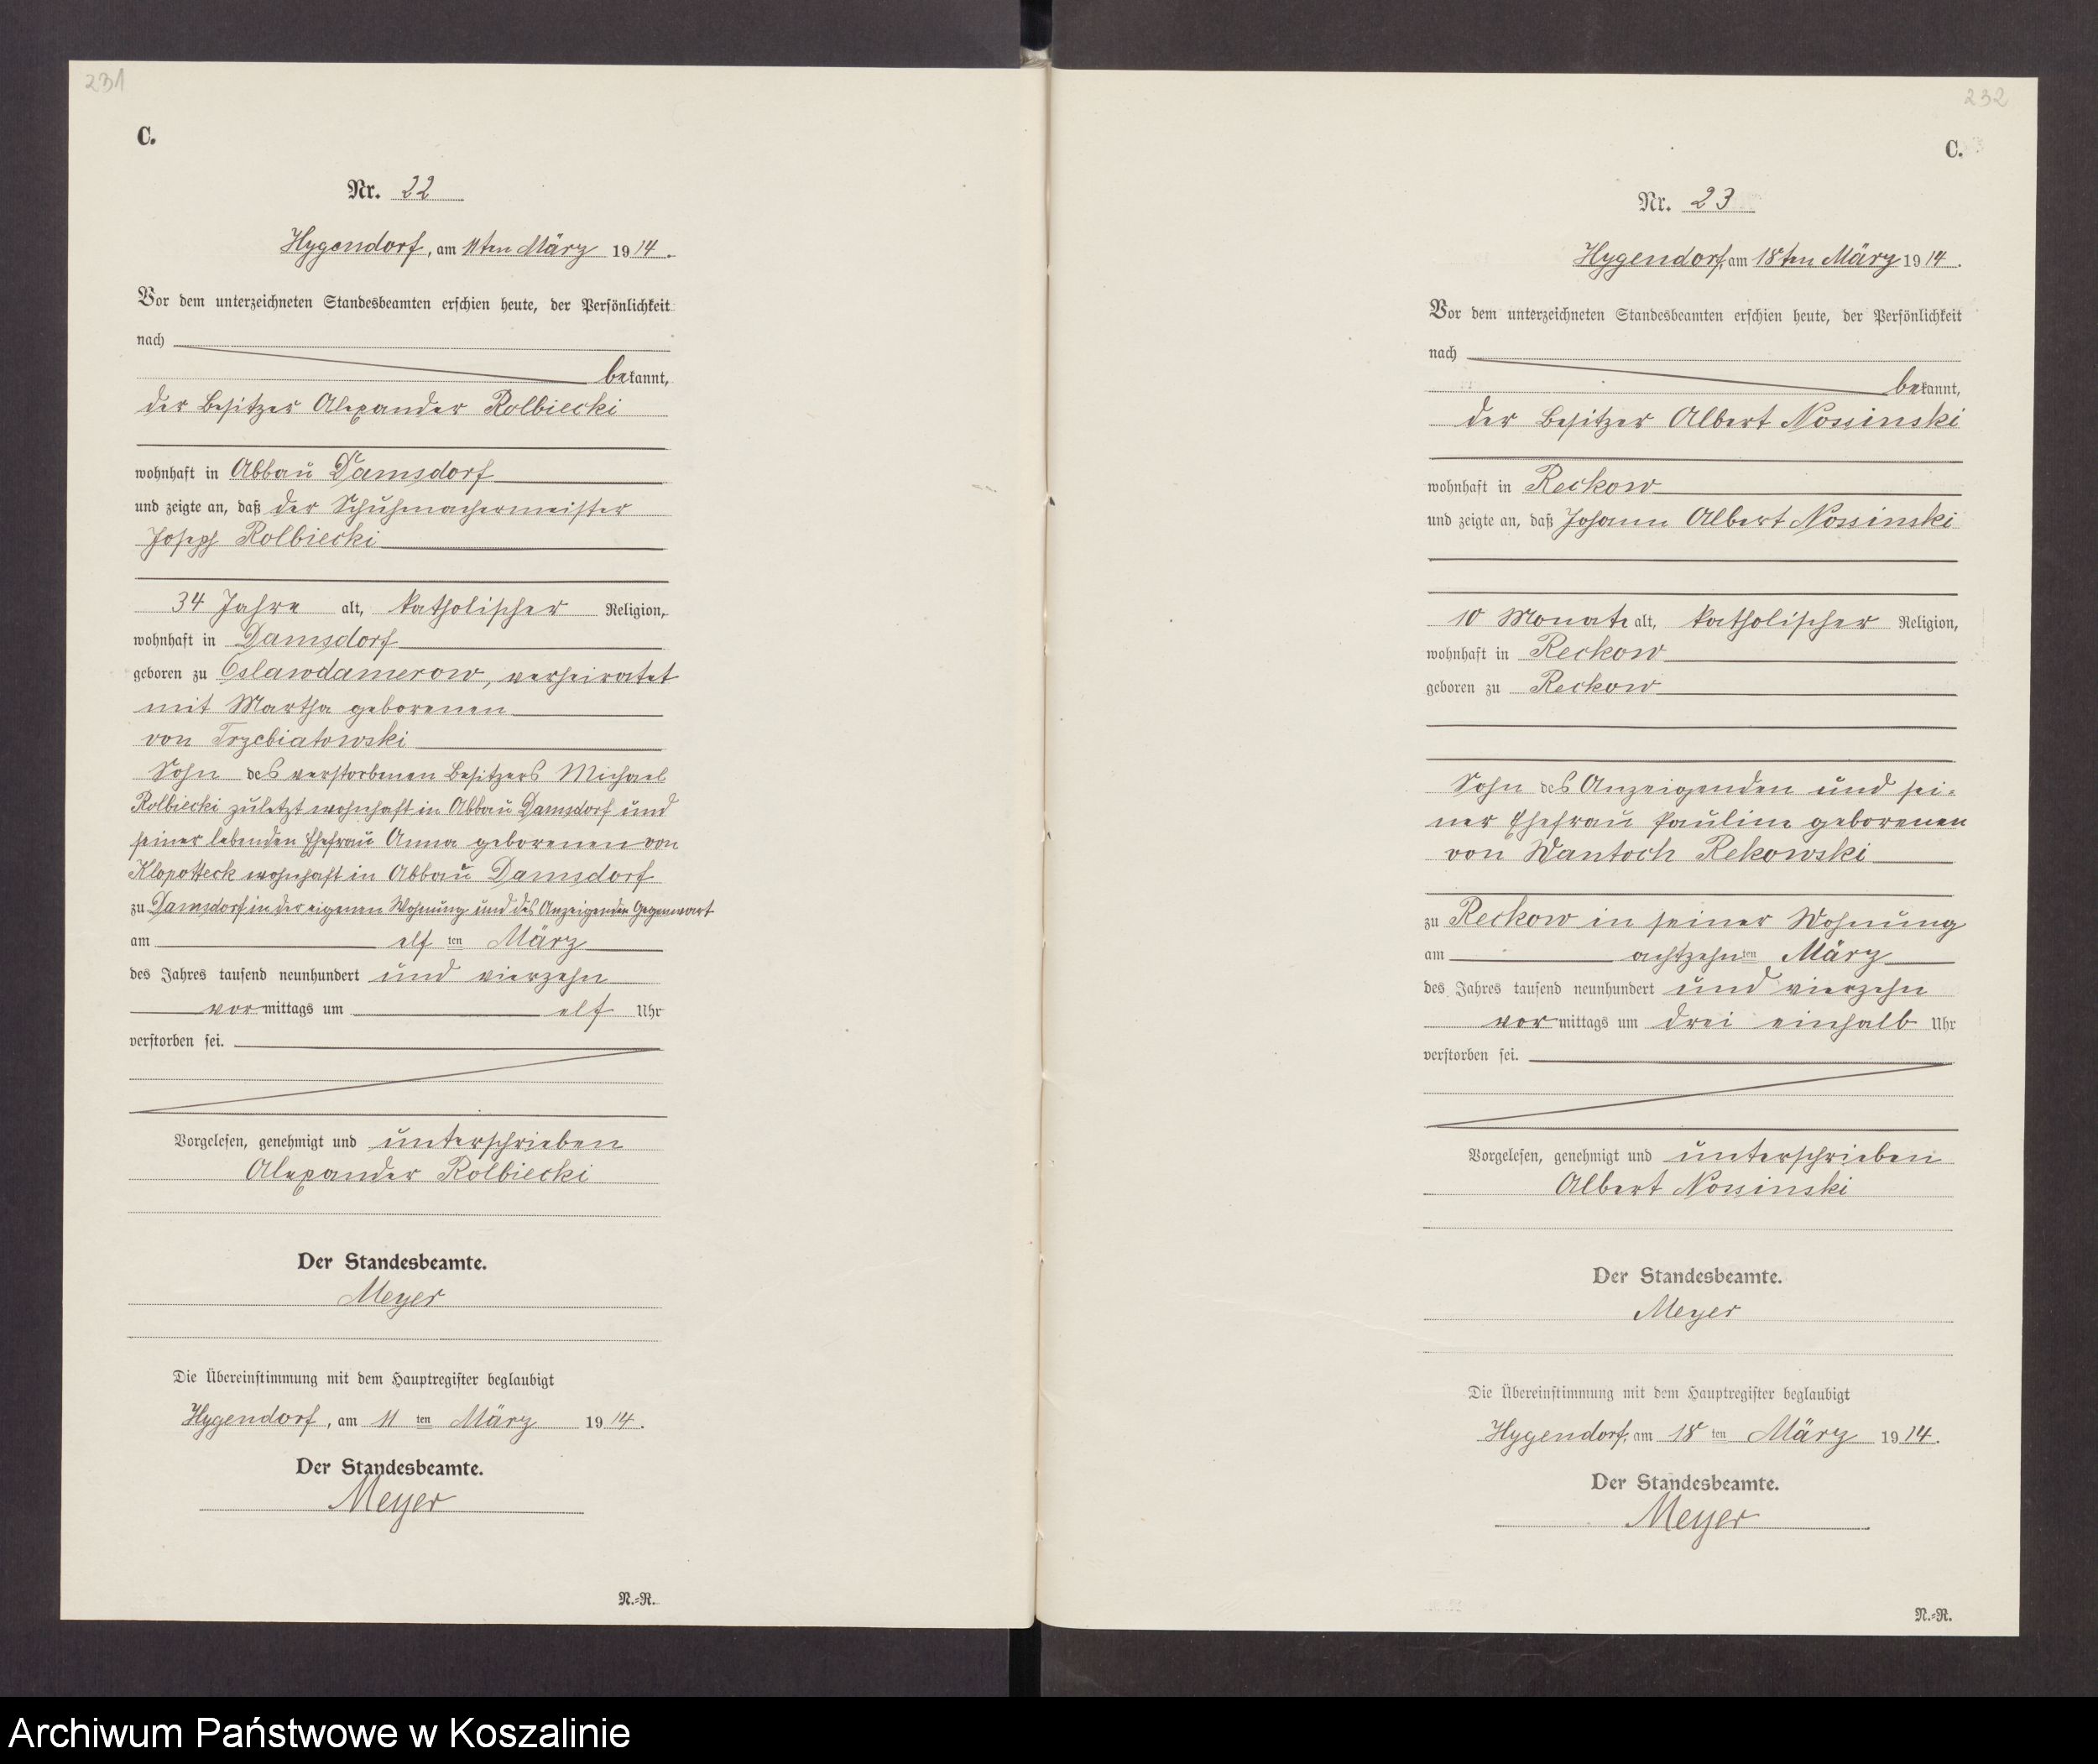 231
C.
Nr. 22
Hygendorf, am 11ten März 1914.
Vor dem unterzeichneten Standesbeamten erschien heute, der Persönlichkeit
nach
bekannt,
der Besitzer Alexander Rolbiecki
wohnhaft in Abbau Damsdorf
und zeigte an, daß der Schuhmachermeister
Joseph Rolbiecki
34 Jahre alt, katholischer Religion,
wohnhaft in Damsdorf
geboren zu Oslawdamerow, verheiratet
mit Martha geborenen
von Trzebiatowski
Sohn des verstorbenen Besitzers Michael
Rolbiecki zuletzt wohnhaft in Abbau Damsdorf und
seiner lebenden Ehefrau Anna geborenen von
Klopotteck wohnhaft in Abbau Damsdorf
zu Damsdorf in der eigenen Wohnung und des Anzeigenden Gegenwart
am elf ten März
des Jahres tausend neunhundert und vierzehn
vormittags um elf Uhr
verstorben sei.
Vorgelesen, genehmigt und unterschrieben
Alexander Rolbiecki
Der Standesbeamte.
Meyer
Die Übereinstimmung mit dem Hauptregister beglaubigt
Hygendorf, am 11 ten März 1914.
Der Standesbeamte.
Meyer
N.-R.
232
C.
Nr. 23
Hygendorf, am 18ten März 1914.
Vor dem unterzeichneten Standesbeamten erschien heute, der Persönlichkeit
nach
bekannt,
der Besitzer Albert Nossinski
wohnhaft in Reckow
und zeigte an, daß Johann Albert Nossinski
10 Monate alt, katholischer Religion,
wohnhaft in Reckow
geboren zu Reckow
Sohn des Anzeigenden und sei-
ner Ehefrau Pauline geborenen
von Wantoch Rekowski
zu Reckow in seiner Wohnung
am achtzehnten März
des Jahres tausend neunhundert und vierzehn
vormittags um drei einhalb Uhr
verstorben sei.
Vorgelesen, genehmigt und unterschrieben
Albert Nossinski
Der Standesbeamte.
Meyer
Die Übereinstimmung mit dem Hauptregister beglaubigt
Hygendorf, am 18 ten März 1914.
Der Standesbeamte.
Meyer
N.-R.
Archiwum Państwowe w Koszalinie